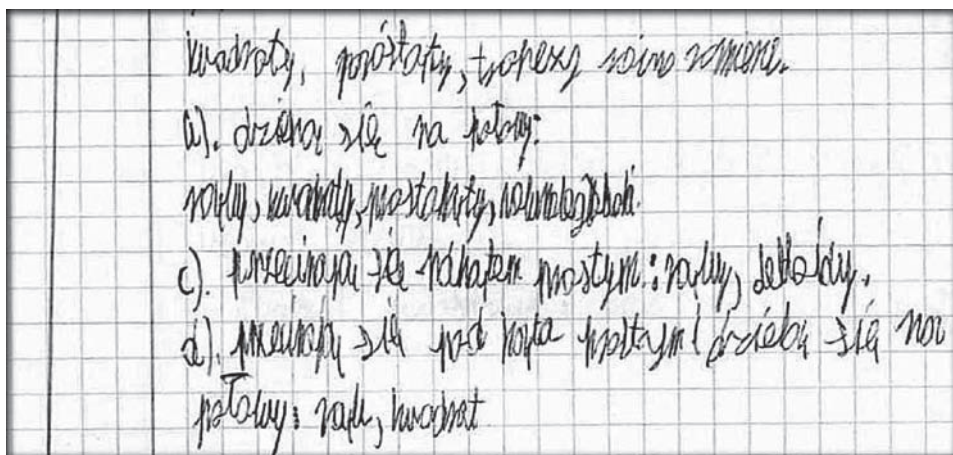 kwadraty, prostąty, trapezy równo ramiene.
a). dzielną się na połowy:
romby, kwadraty, prostokąty, równoległoboki.
c). przecinają się pod kątem prostym: romby, deltoidy.
d). przecinają się pod kąta prostym i dzielą się na
połowy: romb, kwadrat